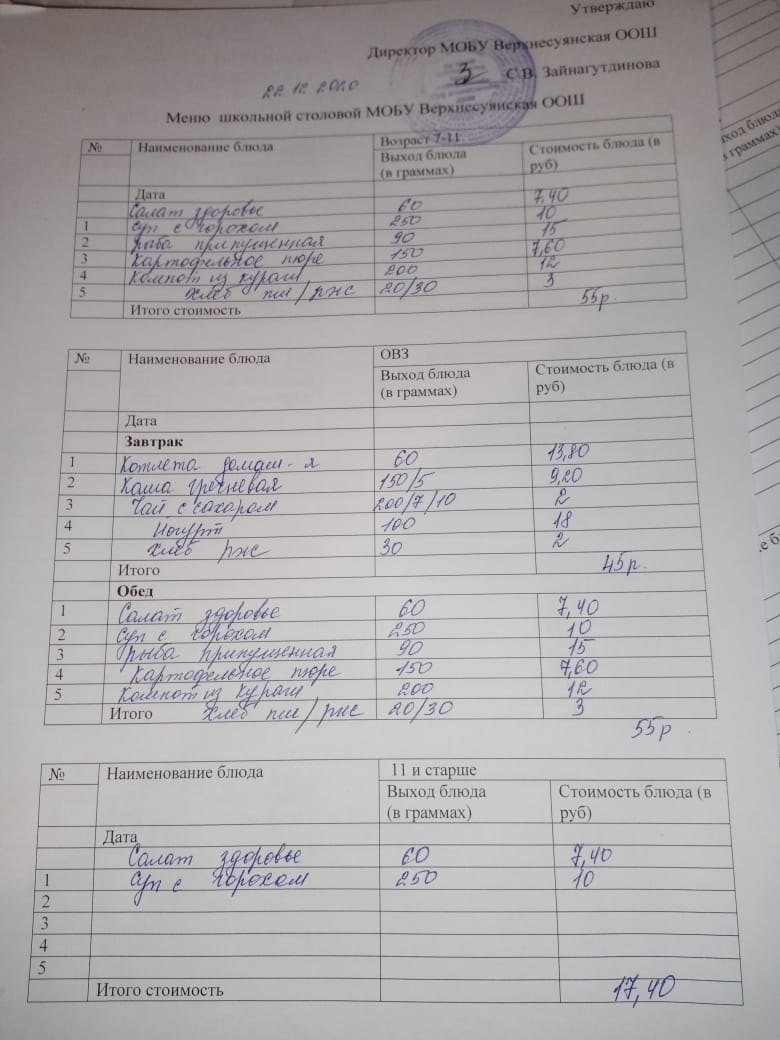 Утверждаю
Директор МОБУ Верхнесуянская ООШ
С.В. Зайнагутдинова
22.12.2020
Меню школьной столовой МОБУ Верхнесуянская ООШ
№ Наименование блюда Возраст 7-11
Выход блюда (в граммах) Стоимость блюда (в руб)
Дата
Салат здоровье 60 7,40
1 Суп с горохом 250 10
2 Рыба припущенная 90 15
3 Картофельное пюре 150 7,60
4 Компот из кураги 200 12
5 Хлеб пш/ржс 20/30 3
Итого стоимость 55р.
№ Наименование блюда ОВЗ
Выход блюда (в граммах) Стоимость блюда (в руб)
Дата
Завтрак
1 Котлета домаш-я 60 13,80
2 Каша гречневая 150/5 9,20
3 Чай с сахаром 200/7/10 2
4 Йогурт 100 18
5 Хлеб ржс 30 2
Итого 45р.
Обед
1 Салат здоровье 60 7,40
2 Суп с горохом 250 10
3 Рыба припущенная 90 15
4 Картофельное пюре 150 7,60
5 Компот из кураги 200 12
Итого Хлеб пш/ржс 20/30 3
55р
№ Наименование блюда 11 и старше
Выход блюда (в граммах) Стоимость блюда (в руб)
Дата
Салат здоровье 60 7,40
1 Суп с горохом 250 10
2
3
4
5
Итого стоимость 17,40